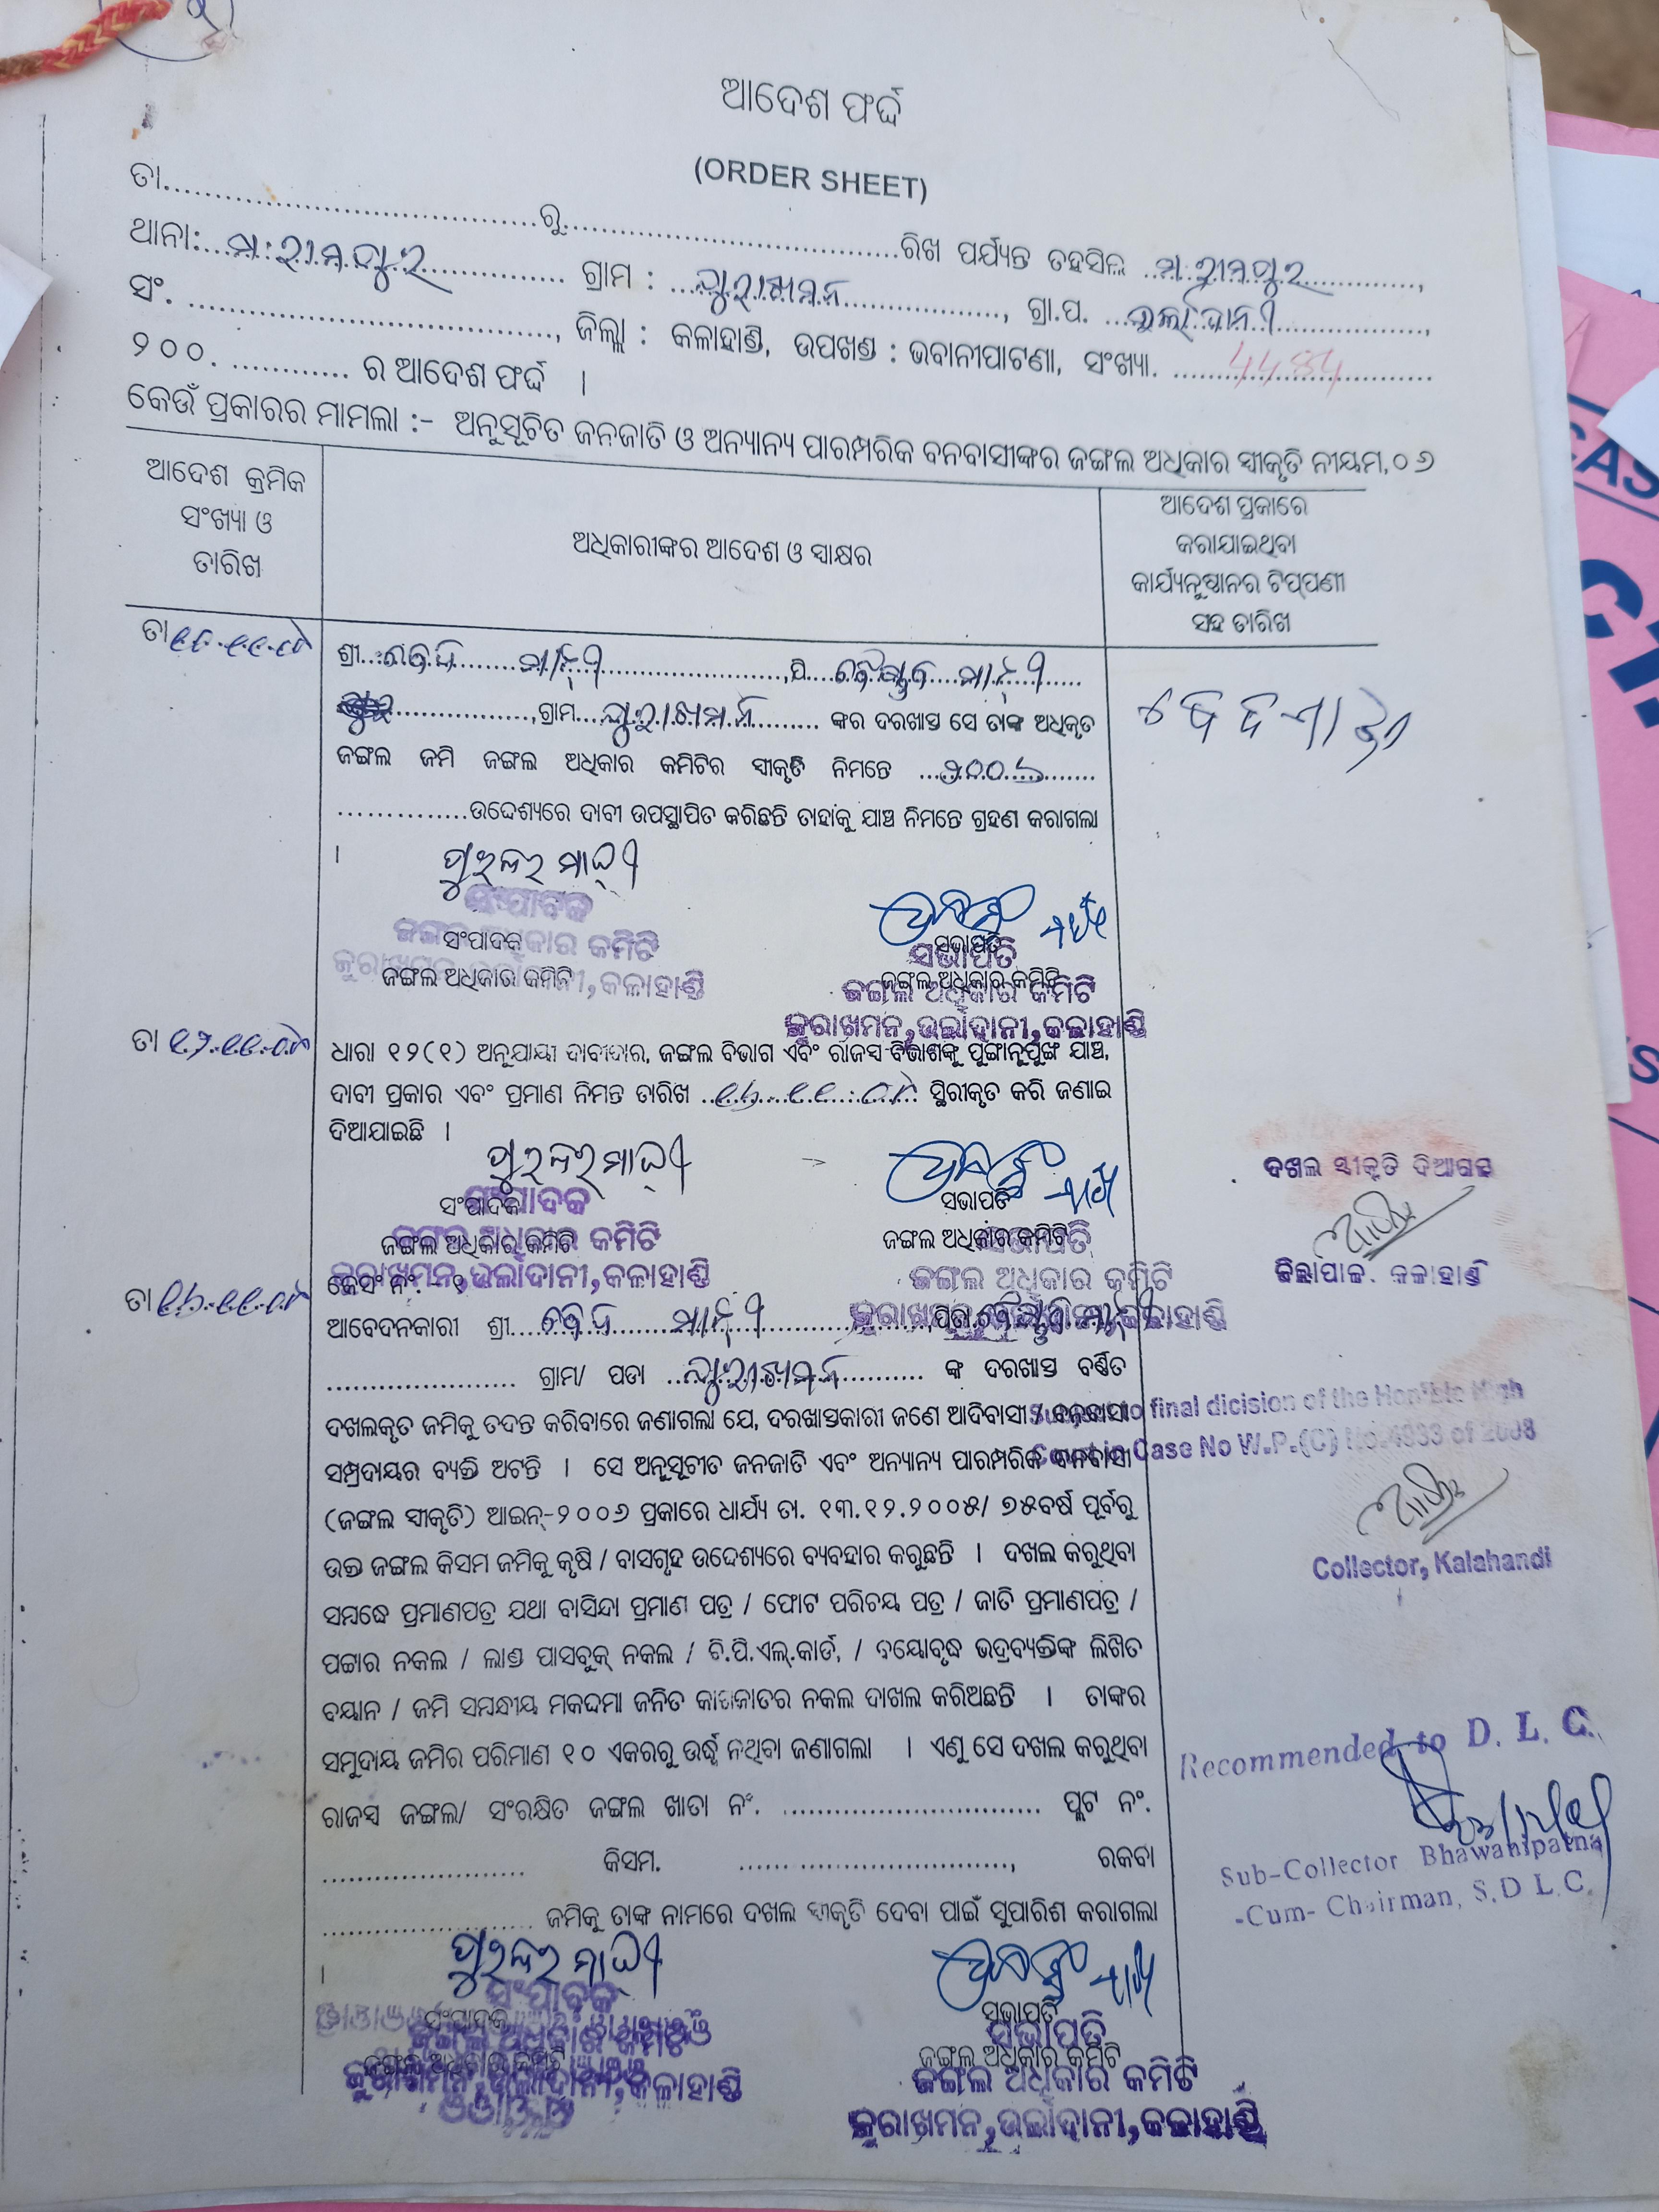 ଆଦେଶ ଫର୍ଦ୍ଦ
(ORDER SHEET)
ତା....................................ରୁ....................................ରିଖ ପର୍ଯ୍ୟନ୍ତ ତହସିଲ ମ.ରାମପୁର,
ଥାନା: ମ.ରାମପୁର ଗ୍ରାମ : କୁରାଖମନ, ଗ୍ରା.ପ. ଉର୍ଲାଦାନୀ,
ସଂ. ...................................., ଜିଲ୍ଲା : କଳାହାଣ୍ଡି, ଉପଖଣ୍ଡ : ଭବାନୀପାଟଣା, ସଂଖ୍ୟା. 4484
୨୦୦. ............ ର ଆଦେଶ ଫର୍ଦ୍ଦ ।
କେଉଁ ପ୍ରକାରର ମାମଲା :- ଅନୁସୂଚିତ ଜନଜାତି ଓ ଅନ୍ୟାନ୍ୟ ପାରମ୍ପରିକ ବନବାସୀଙ୍କର ଜଙ୍ଗଲ ଅଧିକାର ସ୍ୱୀକୃତି ନୀୟମ,୦୬
ଆଦେଶ କ୍ରମିକ
ସଂଖ୍ୟା ଓ
ତାରିଖ
ଅଧିକାରୀଙ୍କର ଆଦେଶ ଓ ସ୍ୱାକ୍ଷର
ଆଦେଶ ପ୍ରକାରେ
କରାଯାଇଥିବା
କାର୍ଯ୍ୟାନୁଷ୍ଠାନର ଟିପ୍ପଣୀ
ସହ ତାରିଖ
ତା
ଶ୍ରୀ ମାଝୀ ,ପି ବୈଷ୍ଣବ ମାଝୀ
,ଗ୍ରାମ କୁରାଖମନ ଙ୍କର ଦରଖାସ୍ତ ସେ ତାଙ୍କ ଅଧିକୃତ
ଜଙ୍ଗଲ ଜମି ଜଙ୍ଗଲ ଅଧିକାର କମିଟିର ସ୍ୱୀକୃତି ନିମନ୍ତେ ୨୦୦୬
...............ଉଦ୍ଦେଶ୍ୟରେ ଦାବୀ ଉପସ୍ଥାପିତ କରିଛନ୍ତି ତାହାକୁ ଯାଞ୍ଚ ନିମନ୍ତେ ଗ୍ରହଣ କରାଗଲା
।
ପୁରନ୍ଦର ମାଝୀ
ସଂପାଦକ
ଜଙ୍ଗଲ ଅଧିକାର କମିଟି
ସଂପାଦକ
ଜଙ୍ଗଲ ଅଧିକାର କମିଟି
କୁରାଖମନ, କଳାହାଣ୍ଡି
ସଭାପତି
ଜଙ୍ଗଲ ଅଧିକାର କମିଟି
ସଭାପତି
ଜଙ୍ଗଲ ଅଧିକାର କମିଟି
କୁରାଖମନ,ଉର୍ଲାଦାନୀ,କଳାହାଣ୍ଡି
ତା
ଧାରା ୧୨(୧) ଅନୁଯାୟୀ ଦାବୀଦାର, ଜଙ୍ଗଲ ବିଭାଗ ଏବଂ ରାଜସ୍ୱ ବିଭାଗଙ୍କୁ ପୁଙ୍ଖାନୁପୁଙ୍ଖ ଯାଞ୍ଚ,
ଦାବୀ ପ୍ରକାର ଏବଂ ପ୍ରମାଣ ନିମନ୍ତ ତାରିଖ ସ୍ଥିରୀକୃତ କରି ଜଣାଇ
ଦିଆଯାଇଛି ।
ପୁରନ୍ଦର ମାଝୀ
ସଂପାଦକ
ଜଙ୍ଗଲ ଅଧିକାର କମିଟି
ସଂପାଦକ
ଜଙ୍ଗଲ ଅଧିକାର କମିଟି
କୁରାଖମନ,ଉର୍ଲାଦାନୀ,କଳାହାଣ୍ଡି
ସଭାପତି
ଜଙ୍ଗଲ ଅଧିକାର କମିଟି
ସଭାପତି
ଜଙ୍ଗଲ ଅଧିକାର କମିଟି
ଦଖଲ ସ୍ୱୀକୃତି ଦିଆଗଲା
ଜିଲ୍ଲାପାଳ. କଳାହାଣ୍ଡି
ତା
କେସ ନଂ.
ଆବେଦନକାରୀ ଶ୍ରୀ ମାଝୀ ପିତା
...................... ଗ୍ରାମ/ ପଡା କୁରାଖମନ ଙ୍କ ଦରଖାସ୍ତ ବର୍ଣ୍ଣିତ
ଦଖଲକୃତ ଜମିକୁ ତଦନ୍ତ କରିବାରେ ଜଣାଗଲା ଯେ, ଦରଖାସ୍ତକାରୀ ଜଣେ ଆଦିବାସୀ / ବନବାସୀ
ସମ୍ପ୍ରଦାୟର ବ୍ୟକ୍ତି ଅଟନ୍ତି । ସେ ଅନୁସୂଚୀତ ଜନଜାତି ଏବଂ ଅନ୍ୟାନ୍ୟ ପାରମ୍ପରିକ ବନବାସୀ
(ଜଙ୍ଗଲ ସ୍ୱୀକୃତି) ଆଇନ୍-୨୦୦୬ ପ୍ରକାରେ ଧାର୍ଯ୍ୟ ତା. ୧୩.୧୨.୨୦୦୫/ ୭୫ବର୍ଷ ପୂର୍ବରୁ
ଉକ୍ତ ଜଙ୍ଗଲ କିସମ ଜମିକୁ କୃଷି / ବାସଗୃହ ଉଦ୍ଦେଶ୍ୟରେ ବ୍ୟବହାର କରୁଛନ୍ତି । ଦଖଲ କରୁଥିବା
ସମ୍ବନ୍ଧେ ପ୍ରମାଣପତ୍ର ଯଥା ବାସିନ୍ଦା ପ୍ରମାଣ ପତ୍ର / ଫୋଟ ପରିଚୟ ପତ୍ର / ଜାତି ପ୍ରମାଣପତ୍ର /
ପଟ୍ଟାର ନକଲ / ଲାଣ୍ଡ ପାସବୁକ୍ ନକଲ / ବି.ପି.ଏଲ୍.କାର୍ଡ, / ବୟୋବୃଦ୍ଧ ଭଦ୍ରବ୍ୟକ୍ତିଙ୍କ ଲିଖିତ
ବୟାନ / ଜମି ସମ୍ବନ୍ଧୀୟ ମକଦ୍ଦମା ଜନିତ କାଗଜାତର ନକଲ ଦାଖଲ କରିଅଛନ୍ତି । ତାଙ୍କର
ସମୁଦାୟ ଜମିର ପରିମାଣ ୧୦ ଏକରରୁ ଉର୍ଦ୍ଧ୍ୱ ନଥିବା ଜଣାଗଲା । ଏଣୁ ସେ ଦଖଲ କରୁଥିବା
ରାଜସ୍ୱ ଜଙ୍ଗଲ/ ସଂରକ୍ଷିତ ଜଙ୍ଗଲ ଖାତା ନଂ. .............................. ପ୍ଲଟ ନଂ.
........................ କିସମ. .................................., ରକବା
......................... ଜମିକୁ ତାଙ୍କ ନାମରେ ଦଖଲ ସ୍ୱୀକୃତି ଦେବା ପାଇଁ ସୁପାରିଶ କରାଗଲା
।
Subject to final dicision of the Hon'ble High
Court in Case No W.P.(C) No.4933 of 2008
Collector, Kalahandi
Recommended to D. L. C.
Sub-Collector Bhawanipatna
-Cum- Chairman, S.D L.C.
ପୁରନ୍ଦର ମାଝୀ
ସଂପାଦକ
ଜଙ୍ଗଲ ଅଧିକାର କମିଟି
ସଂପାଦକ
ଜଙ୍ଗଲ ଅଧିକାର କମିଟି
କୁରାଖମନ,ଉର୍ଲାଦାନୀ,କଳାହାଣ୍ଡି
ସଭାପତି
ଜଙ୍ଗଲ ଅଧିକାର କମିଟି
ସଭାପତି
ଜଙ୍ଗଲ ଅଧିକାର କମିଟି
କୁରାଖମନ,ଉର୍ଲାଦାନୀ,କଳାହାଣ୍ଡି